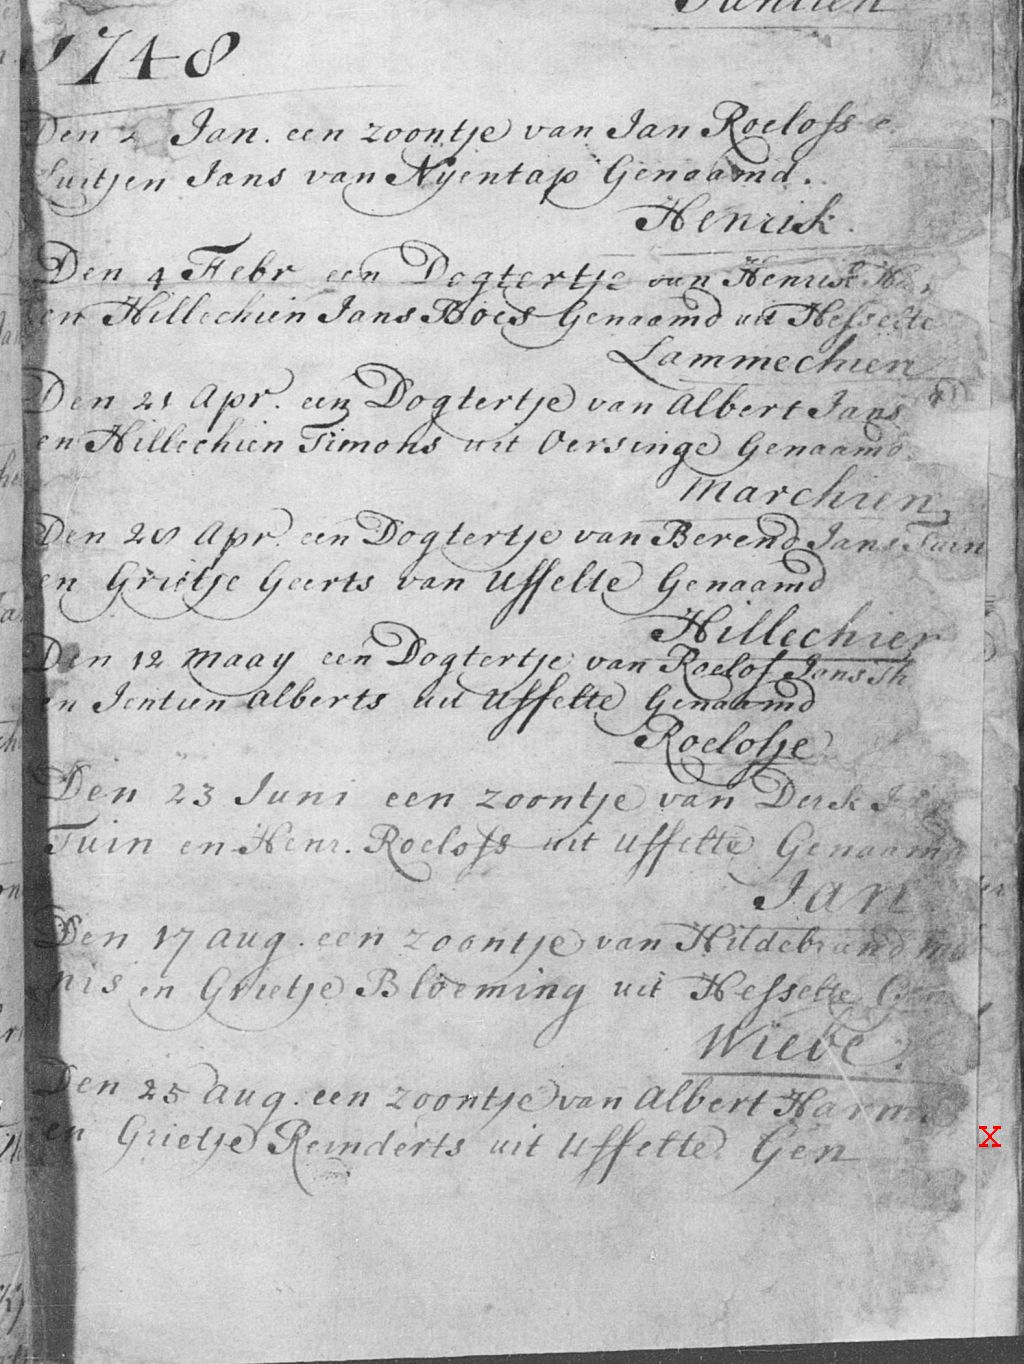 1748
Den 2 Jan. een zoontje van Jan Roelofs e
Luitjen Jans van Nyentap Genaamd.
Henrik.
Den 4 Febr een Dogtertje van Henrik
en Hillechien Jans Boes Genaamd uit Hesselte
Lammechien
Den 21 Apr. een Dogtertje van Albert Jans
en Hillechien Timons uit Oersinge Genaamd.
Marchien
Den 28 Apr. een Dogtertje van Berend Jans Tuin
en Grietje Geerts van Uffelte Genaamd
Hillechien
Den 12 Maay een Dogtertje van Roelof Jans
en Jentien Alberts uit Uffelte Genaamd
Roelofje
Den 23 Juni een zoontje van Derk
Tuin en Henr. Roelofs uit Uffelte Genaamd
Jan
Den 17 Aug. een zoontje van Hildebrand
nis en Grietje Bloeming uit Hesselte Gen
Wiebe.
Den 25 Aug. een zoontje van Albert Harms
en Grietje Reinderts uit Uffelte Gen
X